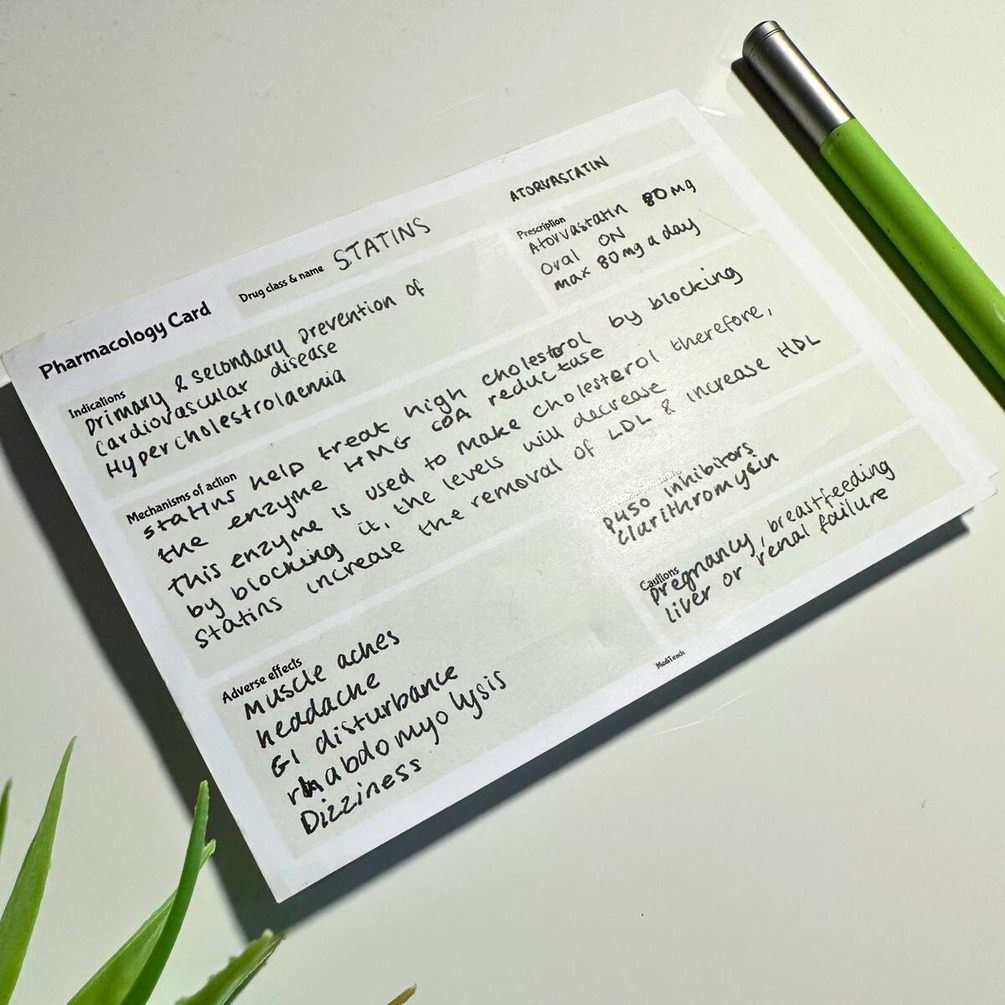 Pharmacology Card
Drug class & name STATINS
ATORVASTATIN
Indications
Primary & secondary prevention of
Cardiovascular disease
Hypercholestrolaemia
Prescription
Atorvastatin 80mg
Oral ON
max 80mg a day
Mechanisms of action
Statins help treat high cholesterol by blocking
the enzyme HMG COA reductase
this enzyme is used to make cholesterol therefore,
by blocking it, the levels will decrease
Statins increase the removal of LDL & increase HDL
Adverse effects
Muscle aches
headache
GI disturbance
rhabdomyolysis
Dizziness
P450 inhibitors
Clarithromycin
Cautions
pregnancy, breastfeeding
liver or renal failure
MediTeach